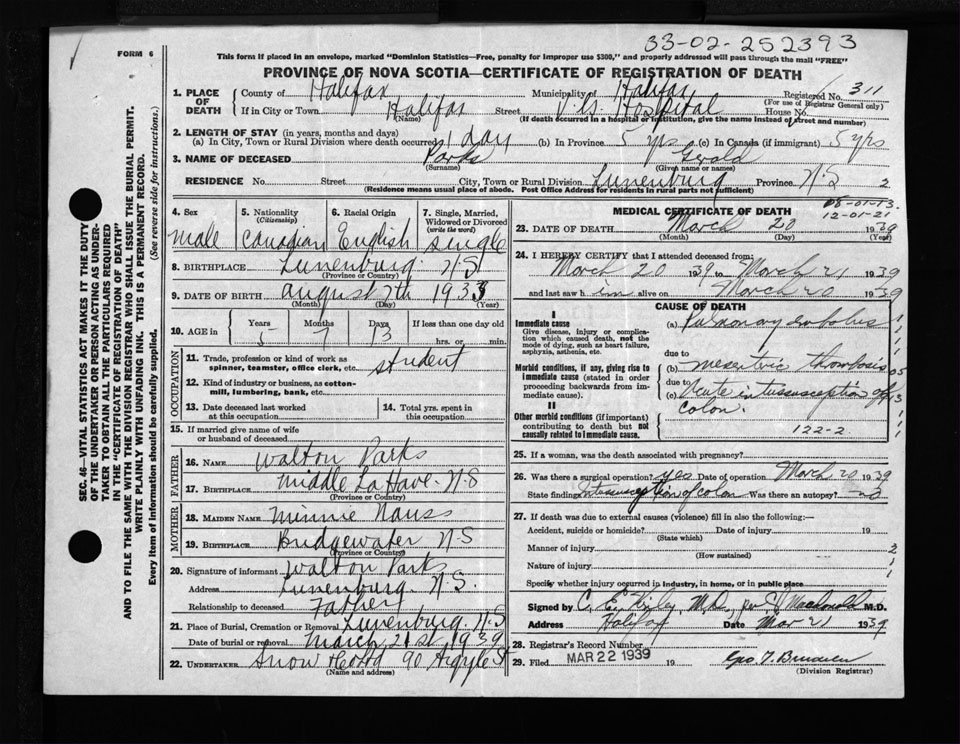 33-02-252393
FORM 6
This form if placed in an envelope, marked "Dominion Statistics—Free, penalty for improper use $300," and properly addressed will pass through the mail "FREE"
PROVINCE OF NOVA SCOTIA—CERTIFICATE OF REGISTRATION OF DEATH
SEC. 46—VITAL STATISTICS ACT MAKES IT THE DUTY
OF THE UNDERTAKER OR PERSON ACTING AS UNDER-
TAKER TO OBTAIN ALL THE PARTICULARS REQUIRED
IN THE "CERTIFICATE OF REGISTRATION OF DEATH"
AND TO FILE THE SAME WITH THE DIVISION REGISTRAR WHO SHALL ISSUE THE BURIAL PERMIT.
WRITE PLAINLY WITH UNFADING INK. THIS IS A PERMANENT RECORD.
Every item of information should be carefully supplied. (See reverse side for instructions.)
1. PLACE OF DEATH County of Halifax Municipality of Halifax Registered No. 311
(For use of Registrar General only)
If in City or Town Halifax Street V.G. Hospital House No.
(Name) (If death occurred in a hospital or institution, give the name instead of street and number)
2. LENGTH OF STAY (in years, months and days)
(a) In City, Town or Rural Division where death occurred 1 day (b) In Province 5 yrs (c) In Canada (if immigrant) 5 yrs
3. NAME OF DECEASED Parks Gerald
(Surname) (Given name or names)
RESIDENCE No. Street City, Town or Rural Division Lunenburg Province N.S 2
(Residence means usual place of abode. Post Office Address for residents in rural parts not sufficient)
4. Sex male
5. Nationality (Citizenship) Canadian
6. Racial Origin English
7. Single, Married, Widowed or Divorced (write the word) single
8. BIRTHPLACE Lunenburg. N.S
(Province or Country)
9. DATE OF BIRTH august 7th 1933
(Month) (Day) (Year)
10. AGE in Years 5 Months 7 Days 13 If less than one day old
hrs. or min.
OCCUPATION
11. Trade, profession or kind of work as spinner, teamster, office clerk, etc. student
12. Kind of industry or business, as cotton-mill, lumbering, bank, etc.
13. Date deceased last worked at this occupation
14. Total yrs. spent in this occupation
15. If married give name of wife or husband of deceased
FATHER
16. NAME Walton Parks
17. BIRTHPLACE Middle La Have. N.S
(Province or Country)
MOTHER
18. MAIDEN NAME Minnie Nauss
19. BIRTHPLACE Bridgewater N.S
(Province or Country)
20. Signature of informant Walton Parks
Address Lunenburg. N.S.
Relationship to deceased Father
21. Place of Burial, Cremation or Removal Lunenburg. N.S
Date of burial or removal March 21st 1939
22. UNDERTAKER Snow & Co Ltd 90 Argyle St
(Name and address)
MEDICAL CERTIFICATE OF DEATH
08-01-13.
12-01-21
23. DATE OF DEATH March 20 1939
(Month) (Day) (Year)
24. I HEREBY CERTIFY that I attended deceased from:
March 20 1939 to March 21 1939
and last saw him alive on March 20 1939
CAUSE OF DEATH
I
Immediate cause
Give disease, injury or complication which caused death, not the mode of dying, such as heart failure, asphyxia, asthenia, etc.
(a) Pulmonary embolus
due to
Morbid conditions, if any, giving rise to immediate cause (stated in order proceeding backwards from immediate cause).
(b) mesentric thrombosis
due to
(c) Acute intussusception of colon.
II
Other morbid conditions (if important) contributing to death but not causally related to immediate cause.
122-2
25. If a woman, was the death associated with pregnancy?
26. Was there a surgical operation? yes Date of operation March 20 1939
State findings Intussusception of colon Was there an autopsy? no
27. If death was due to external causes (violence) fill in also the following:—
Accident, suicide or homicide? Date of injury 19
(State which)
Manner of injury
(How sustained)
Nature of injury
Specify whether injury occurred in industry, in home, or in public place
Signed by C. E. M.D. per Macdonald M.D.
Address Halifax Date Mar 21 1939
28. Registrar's Record Number
29. Filed MAR 22 1939 19
(Division Registrar)